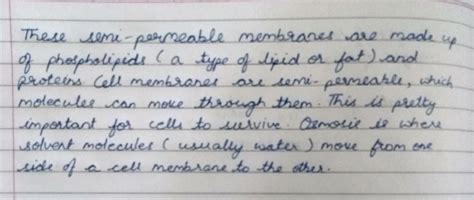 These semi-permeable membranes are made up
of phospholipids ( a type of lipid or fat ) and
proteins. Cell membranes are semi-permeable, which
molecules can move through them. This is pretty
important for cells to survive. Osmosis is where
solvent molecules ( usually water ) move from one
side of a cell membrane to the other.